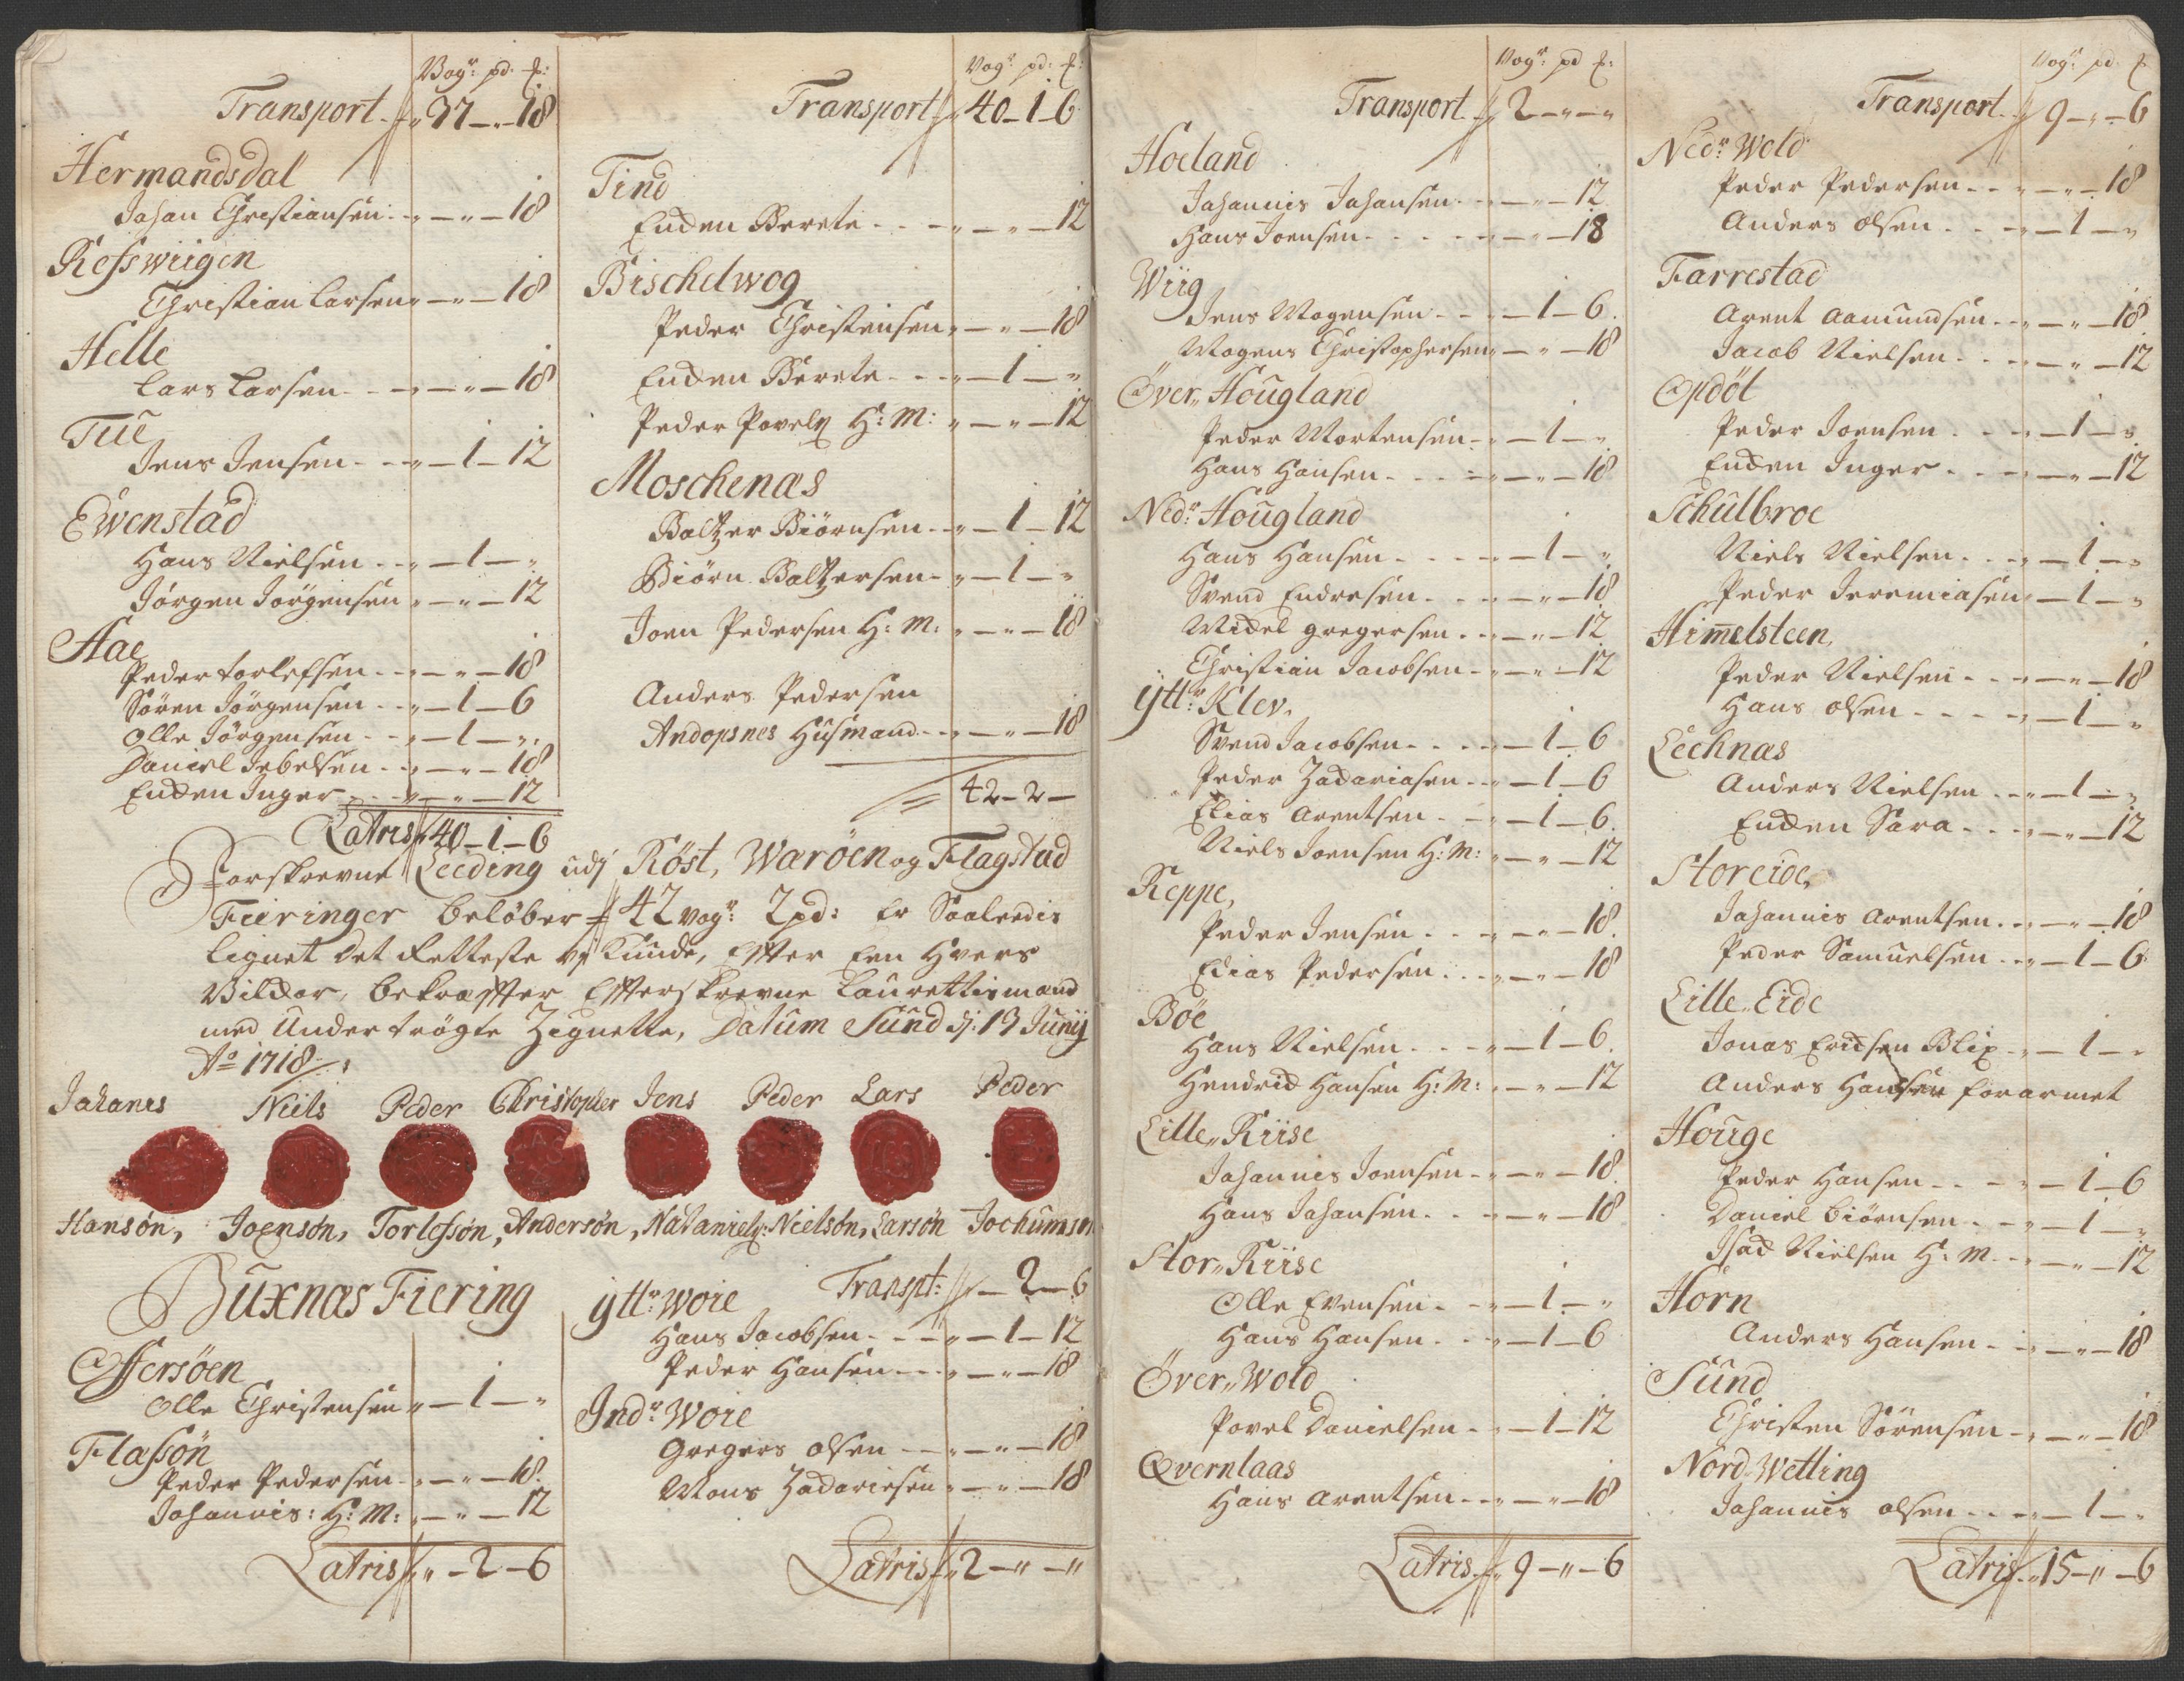 Vogr: pd: £:
Transport 37 — " — 18
Hermandsdal
Johan Christiansen " — " — 18
Ressvrigen
Christian Larsen " — " — 18
Helle
Lars Larsen " — " — 18
Tue
Jens Jensen " — 1 — 12
Evenstad
Hans Nielsen " — 1 — "
Jørgen Jørgensen " — " — 12
Aae
Peder Torlefsen " — " — 18
Søren Jørgensen " — 1 — 6
Olle Jørgensen " — 1 — "
Daniel Jebelsen " — " — 18
Encken Inger " — " — 12
Latris 40 — 1 — 6
Vogr: pd: £:
Transport 40 — 1 — 6
Tind
Encken Berete " — " — 12
Bischelwog
Peder Christensen " — " — 18
Encken Berete " — 1 — "
Peder Povels H: M: " — " — 12
Moschenæs
Baltzer Biörnsen " — 1 — 12
Biörn Baltzersen " — 1 — "
Joen Pedersen H: M: " — " — 18
Anders Pedersen
Andopsnes Husmand " — " — 18
42 — 2 —
Forskrevne Leeding udj Röst, Waröen og Flagstad
Fieringer beløber 42 vogr: 2 pd: er Saaledis
lignet det Retteste vj Kunde, Efter Een Hvers
Vilckor, bekræfter Efterskrevne Laurettismænd
med Undertrögte Zignetter, Datum Sund dj: 13 Junij
Ao 1718
Johanes Niels Peder Christopher Jens Peder Lars Peder
Hansön, Joensön, Torlefsön, Andersön, Nataniels: Nielsön, Larsön Jochumsön
Buxnæs Fiering
Offersöen
Olle Christensen " — 1 — "
Flassön
Peder Pedersen " — " — 18
Johannis: H: M: " — " — 12
Latris " — 2 — 6
Transpt: " — 2 — 6
yttr: Woie
Hans Jacobsen " — 1 — 12
Peder Hansen " — " — 18
Indr: Woie
Gregers Olsen " — " — 18
Mons Zacharisen " — " — 18
Latris 2 — " — "
Vogr: pd £:
Transport 2 — " — "
Hoeland
Johannis Johansen " — " — 12
Hans Joensen " — " — 18
Wiig
Jens Mogensen " — 1 — 6
Mogens Christophersen " — " — 18
Över Hougland
Peder Mortensen " — 1 — "
Hans Hansen " — " — 18
Nedr: Hougland
Hans Hansen " — 1 — "
Svend Endresen " — " — 18
Michel Gregersen " — " — 12
Christian Jacobsen " — " — 12
yttr: Klev
Svend Jacobsen " — 1 — 6
Peder Zachariasen " — 1 — 6
Elias Arentsen " — 1 — 6
Niels Joensen H: M: " — " — 12
Reppe,
Peder Jensen " — " — 18
Elias Pedersen " — " — 18
Böe
Hans Nielsen " — 1 — 6
Hendrich Hansen H: M: " — " — 12
Lille Riise
Johannes Joensen " — " — 18
Hans Johansen " — " — 18
Stor Riise
Olle Evensen " — 1 — "
Hans Hansen " — 1 — 6
Över Wold
Povel Danielsen " — 1 — 12
Qvernlaas
Hans Arentsen " — " — 18
Latris 9 — " — 6
Vogr: pd £
Transport 9 — " — 6
Nedr: Wold
Peder Pedersen " — " — 18
Anders Olsen " — 1 — "
Farrestad
Arent Aamundsen " — " — 18
Jacob Nielsen " — " — 12
Opdöl
Peder Joensen " — 1 — "
Encken Inger " — " — 12
Schulbroe
Niels Nielsen " — 1 — "
Peder Jeremiasen " — 1 — "
Himelsteen
Peder Nielsen " — " — 18
Hans Olsen " — 1 — "
Lecknæs
Anders Nielsen " — 1 — "
Encken Sara " — " — 12
Storeide,
Johannis Arentsen " — " — 18
Peder Samuelsen " — 1 — 6
Lille Eide
Jonas Erichsen Blix " — 1 — "
Anders Hansen forarmet
Houge
Peder Hansen " — 1 — 6
Daniel Biörnsen " — 1 — "
Isach Nielsen H: M " — " — 12
Horn
Anders Hansen " — " — 18
Sund
Christen Sörensen " — " — 18
Nord Wetting
Johannis Olsen " — 1 — "
Latris 15 — " — 6